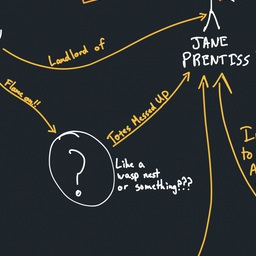 Landlord of
JANE
PRENTISS
Flame on!!
Totes Messed Up
?
Like a
wasp nest
or something???
I
to
A